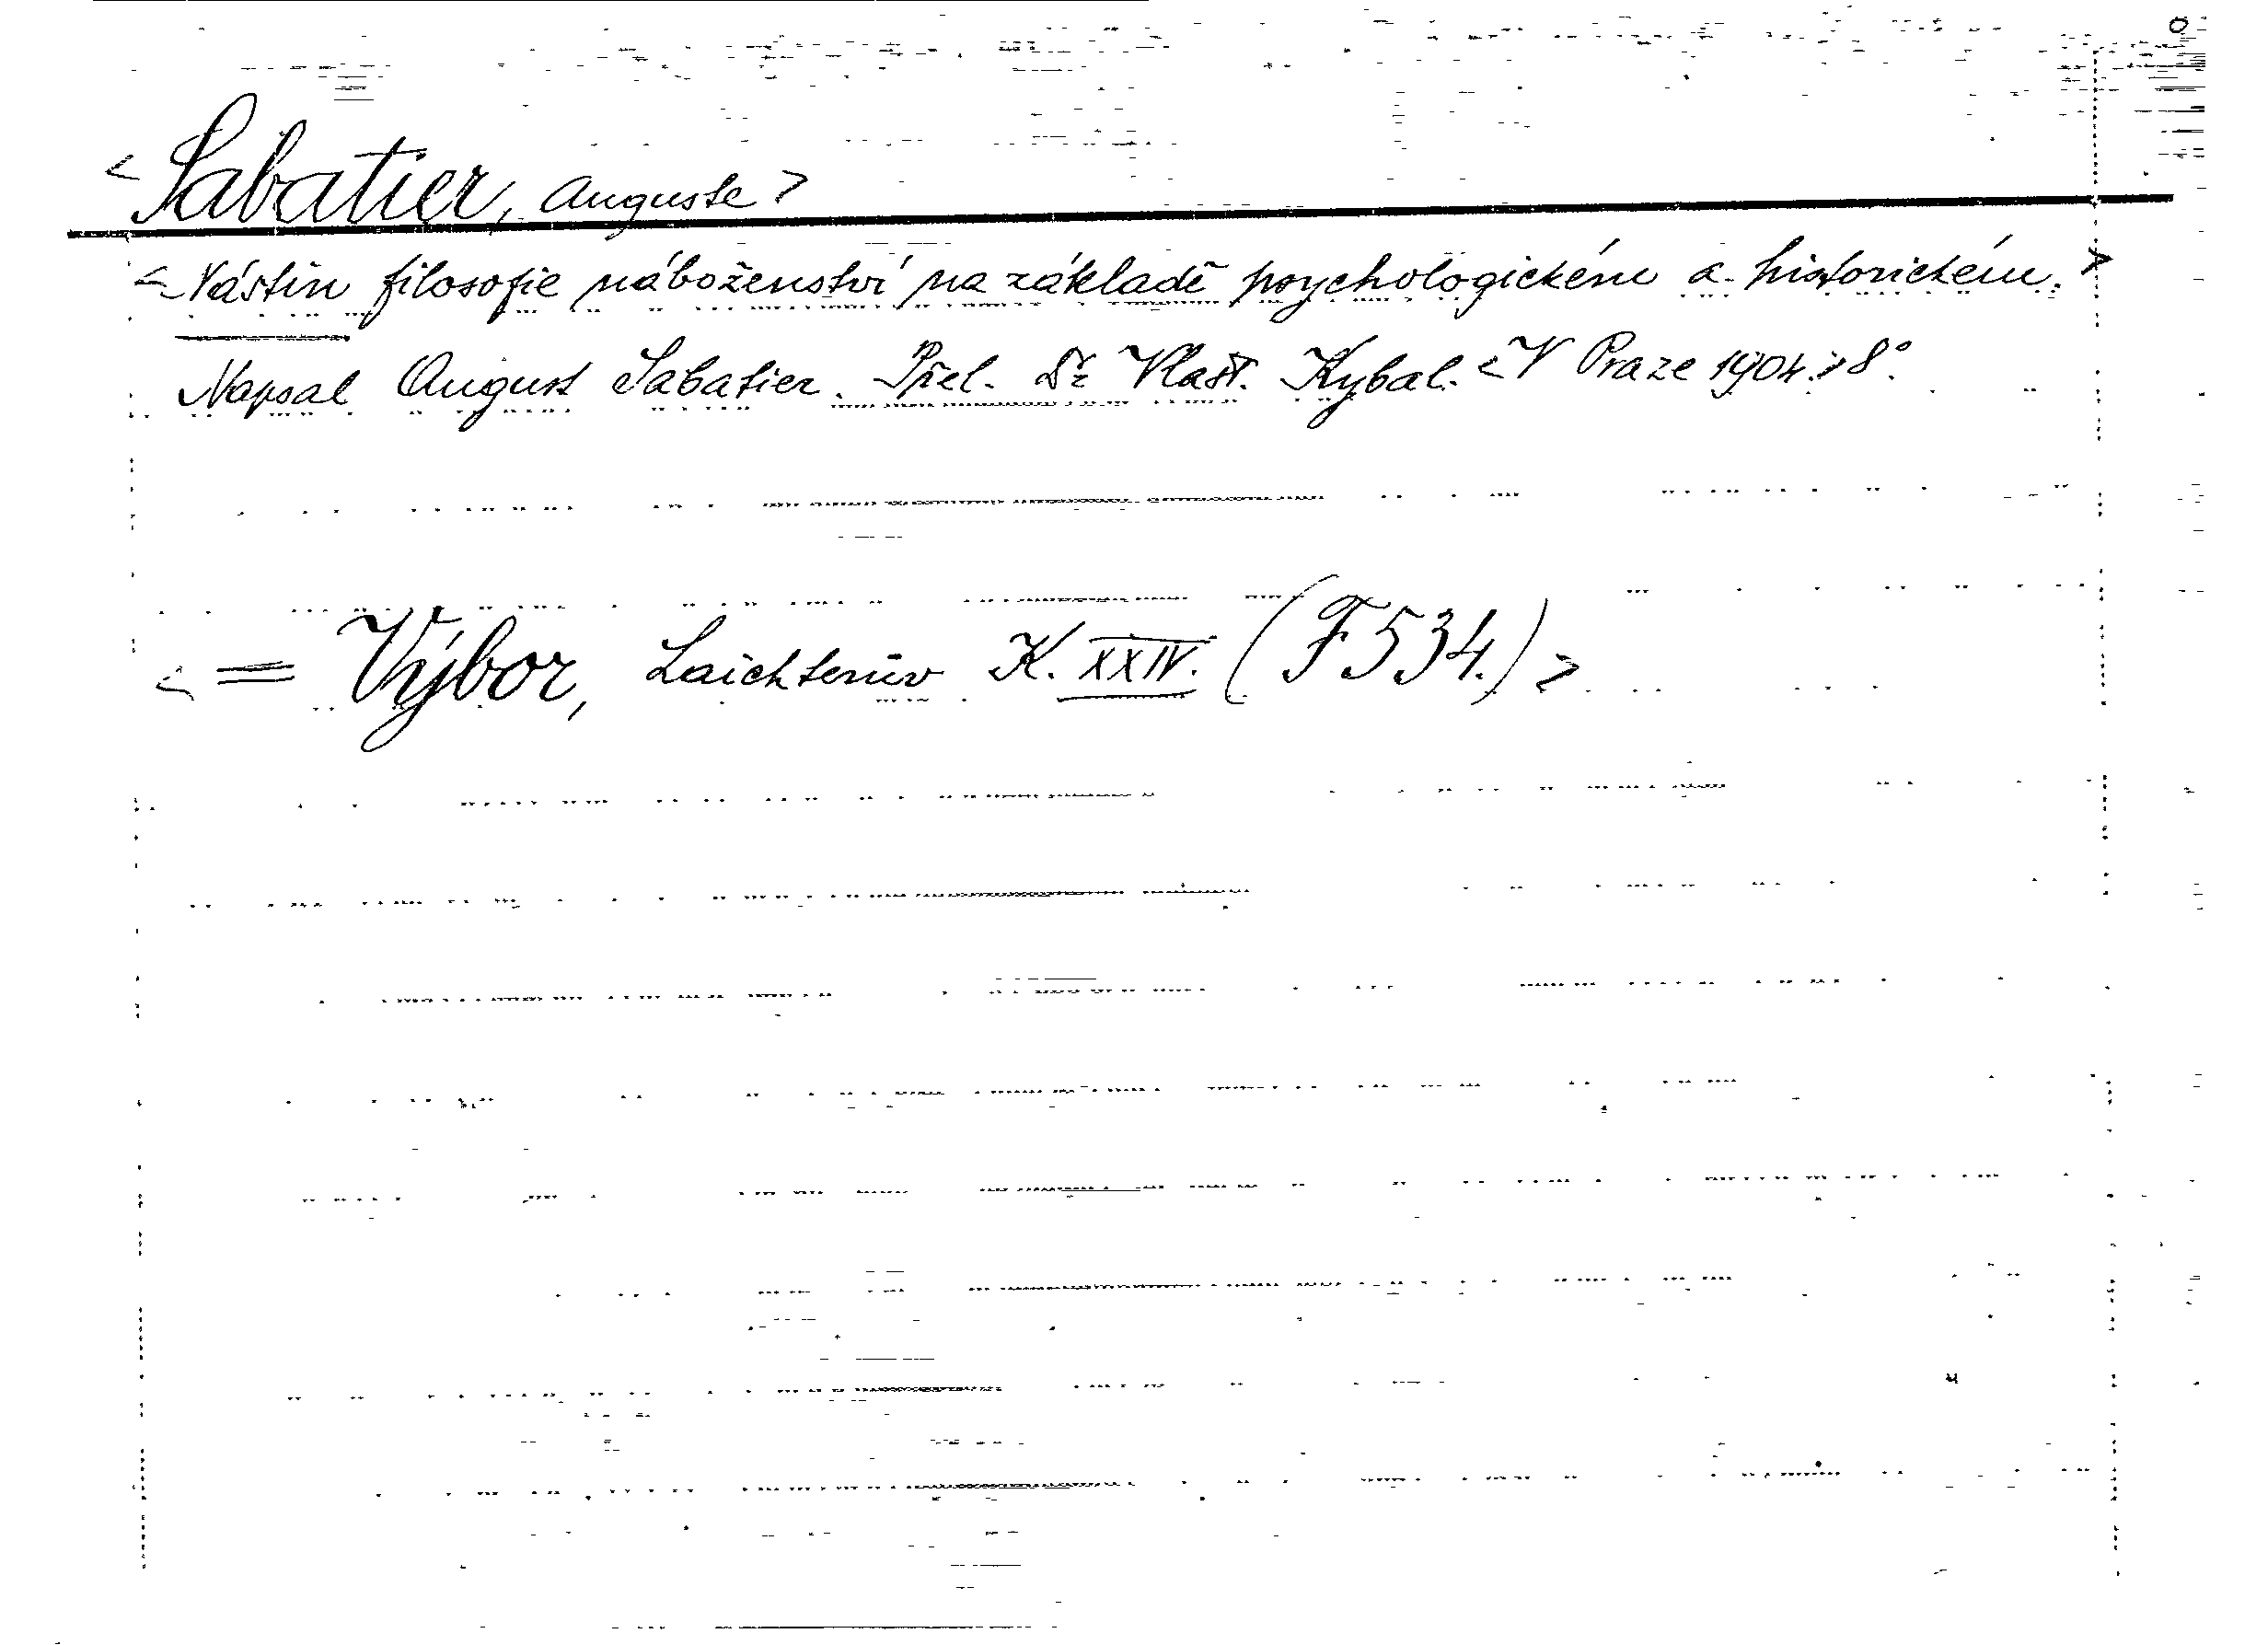 < Sabatier, Auguste >
< Nástin filosofie náboženství na základě psychologickém a historickém. >
Napsal August Sabatier. Přel. Dr Vlast. Kybal. < V Praze 1904. > 8°.
< = Výbor, Laichterův K. XXIV. (F 534.) >